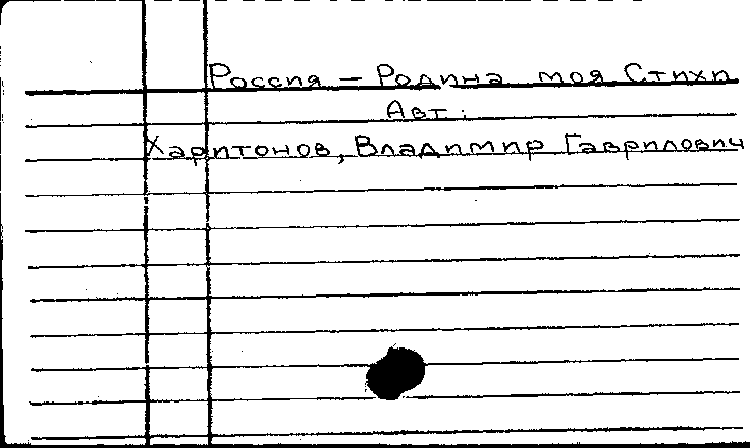 Россия – Родина моя Стихи
Авт:
Харитонов, Владимир Гаврилович